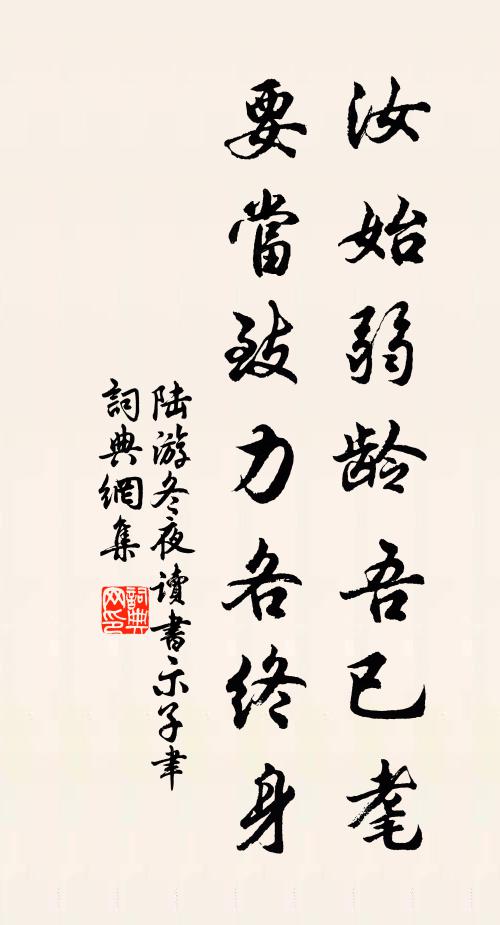 汝始弱龄吾已耄
要當致力各终身
陆游冬夜读書示子聿
詞典網集
詞典网印